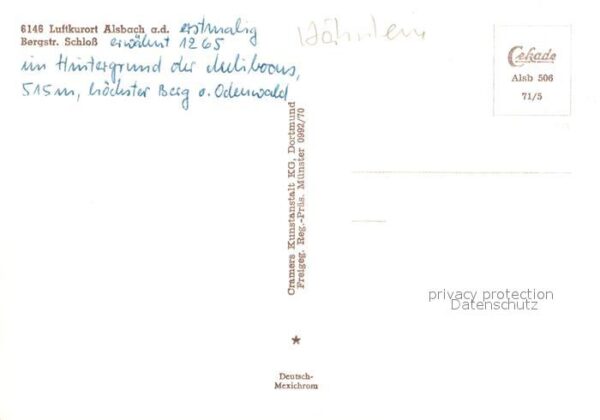 6146 Luftkurort Alsbach a.d. erstmalig
Bergstr. Schloß erwähnt 1265
im Hintergrund der Melibocus,
515m, höchster Berg o. Odenwald
Hähnlein
Cekade
Alsb 506
71/5
Cramers Kunstanstalt KG, Dortmund
Freigeg. Reg.-Präs. Münster 0992/70
privacy protection
Datenschutz
★
Deutsch-
Mexichrom